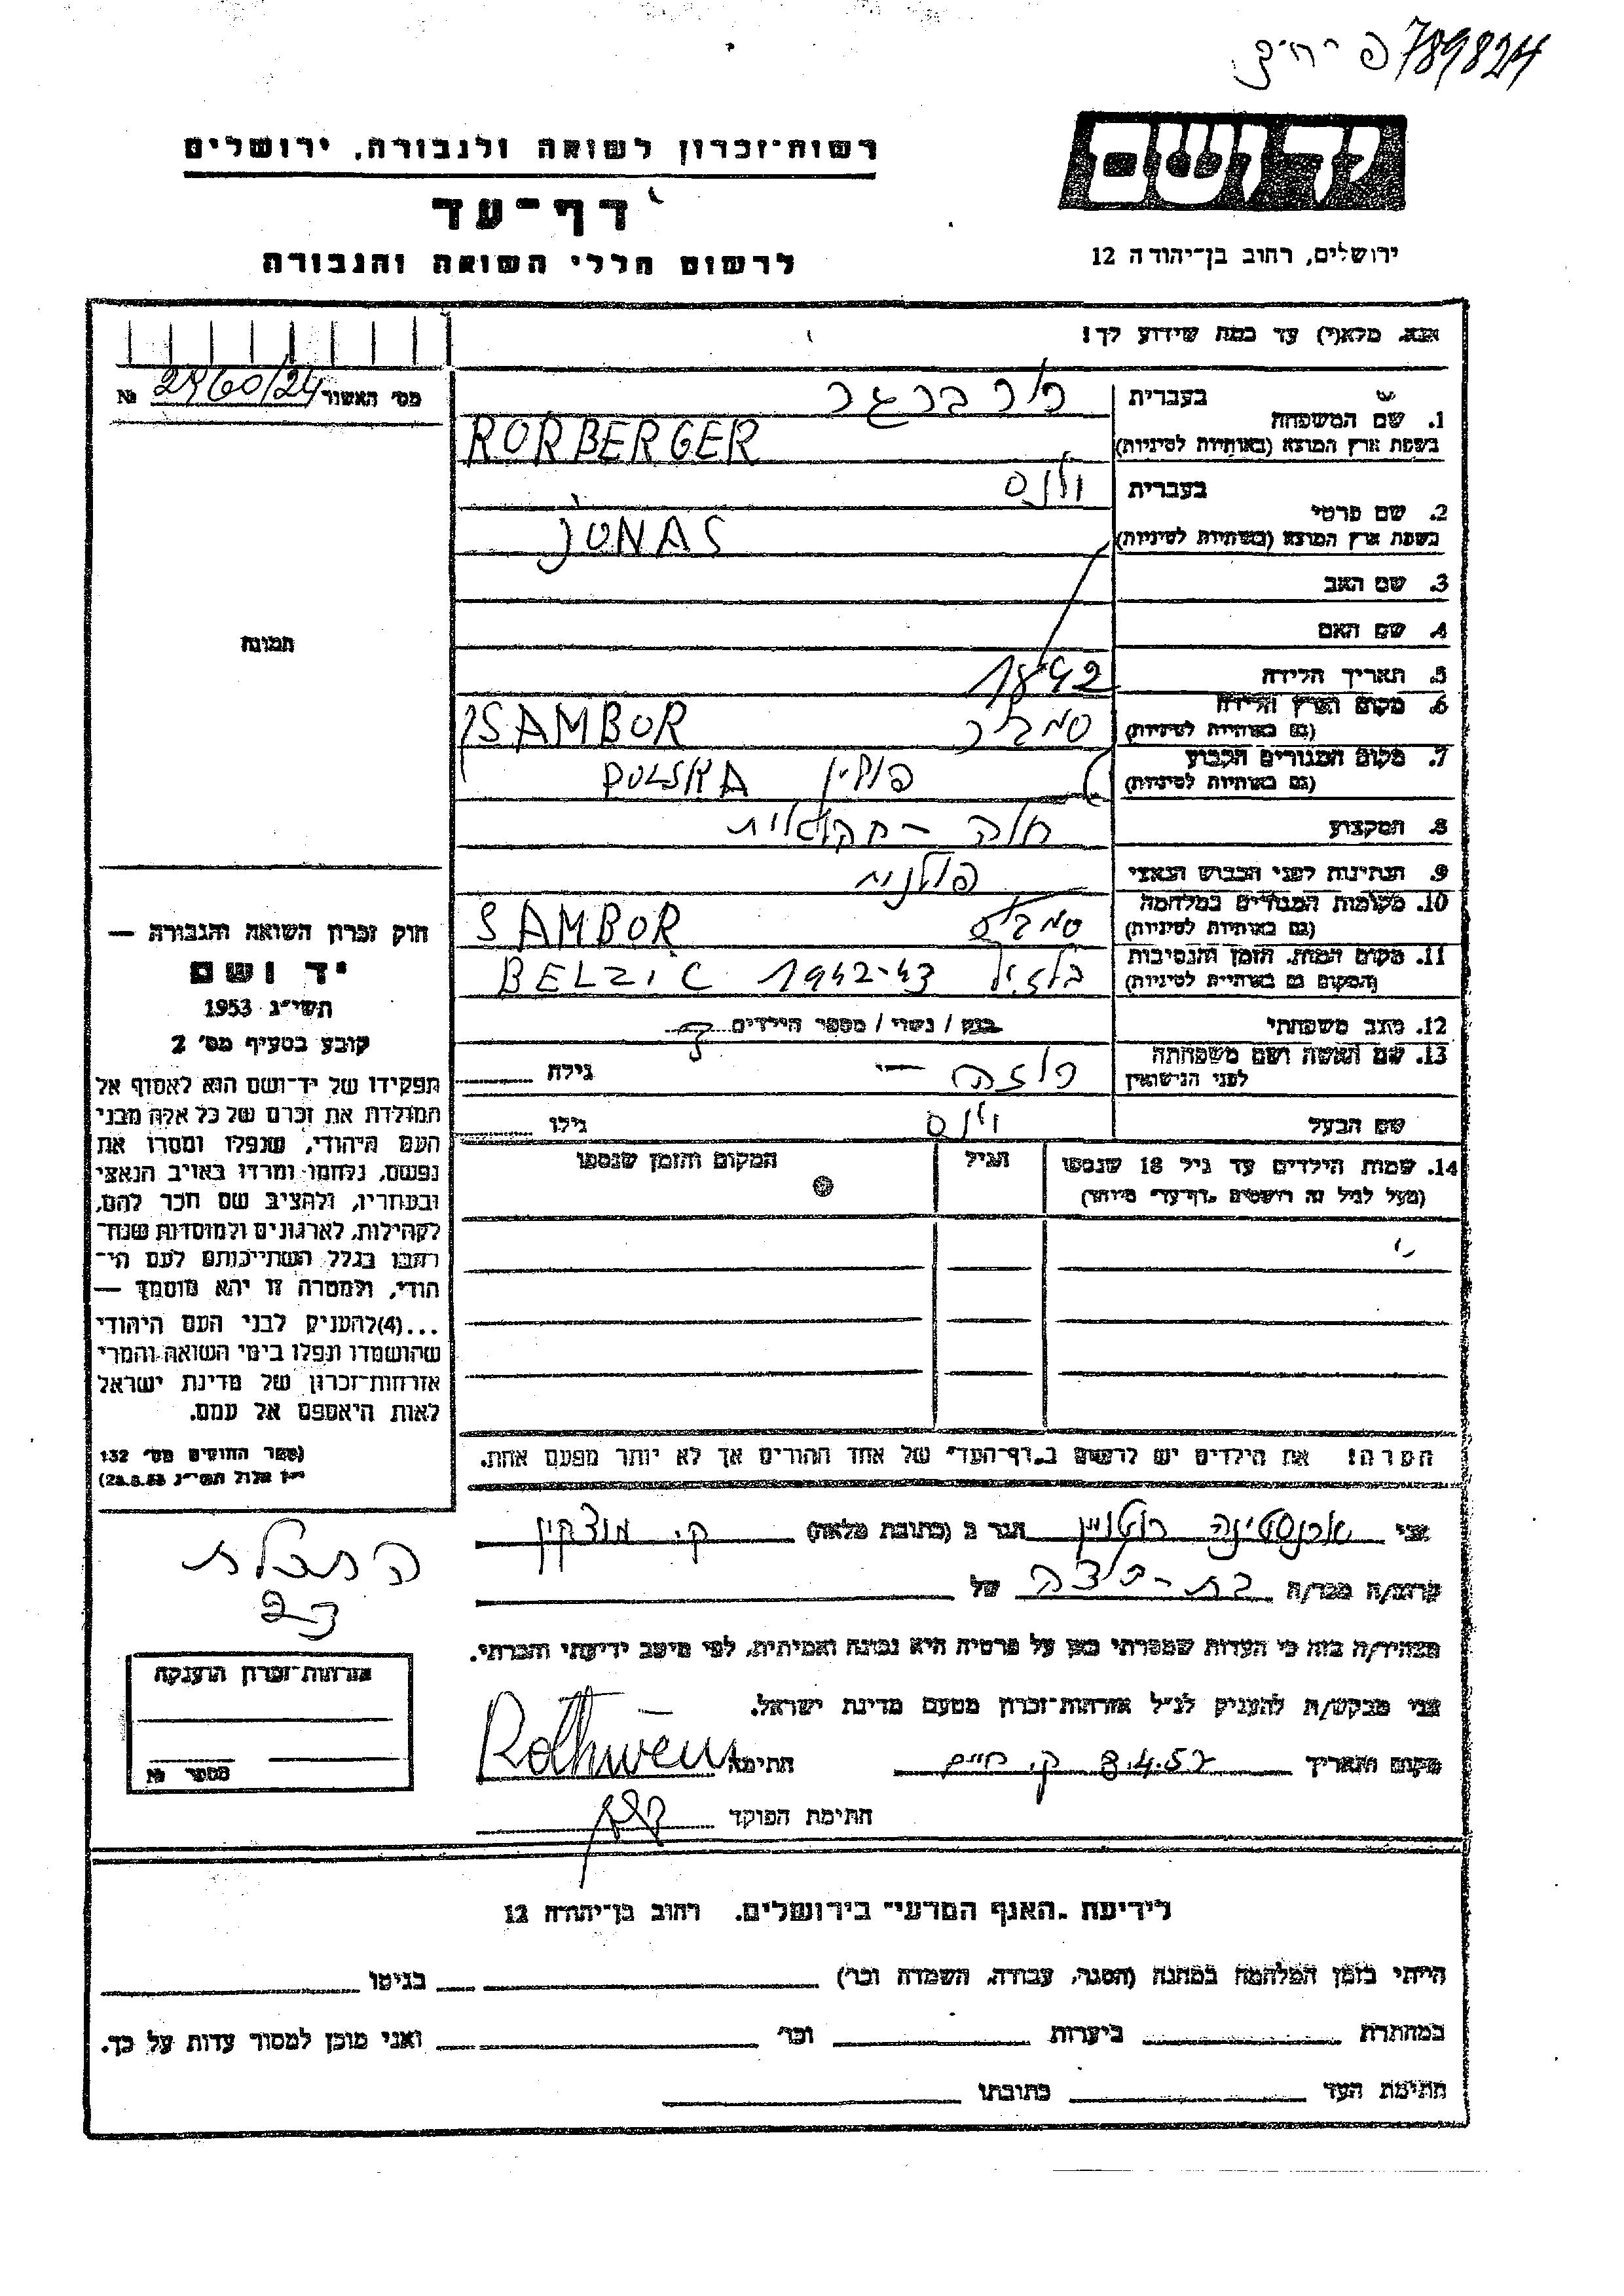 789824
רשות־זכרון לשואה ולגבורה, ירושלים
דף־עד
לרשום חללי השואה והגבורה
יד ושם
ירושלים, רחוב בן־יהודה 12
אנא, מלא(י) עד כמה שידוע לך!
מס׳ האשור 2960/24 №
תמונה
1. שם המשפחה
בעברית
בשפת ארץ המוצא (באותיות לטיניות) RORBERGER
2. שם פרטי
בעברית יונס
בשפת ארץ המוצא (באותיות לטיניות) JONAS
3. שם האב
4. שם האם
5. תאריך הלידה 1892
6. מקום וארץ הלידה
(גם באותיות לטיניות) סמבור SAMBOR
7. מקום המגורים הקבוע
(גם באותיות לטיניות) פולין POLSKA
8. המקצוע
9. הנתינות לפני הכבוש הנאצי פולנית
10. מקומות המגורים במלחמה
(גם באותיות לטיניות) סמבור SAMBOR
11. מקום המות, הזמן והנסיבות
(המקום גם באותיות לטיניות) BELZIC 1942-43
12. מצב משפחתי רווק / נשוי / מספר הילדים
13. שם האשה ושם משפחתה
לפני הנישואין גילה
שם הבעל יונס גילו
14. שמות הילדים עד גיל 18 שנספו
(מעל לגיל זה רושמים „דף־עד״ מיוחד)
הגיל
המקום והזמן שנספו
הערה! את הילדים יש לרשום ב„דף־העד״ של אחד ההורים אך לא יותר מפעם אחת.
חוק זכרון השואה והגבורה —
יד ושם
תשי״ג 1953
קובע בסעיף מס׳ 2
תפקידו של יד־ושם הוא לאסוף אל
המולדת את זכרם של כל אלה מבני
העם היהודי, שנפלו ומסרו את
נפשם, נלחמו ומרדו באויב הנאצי
ובעוזריו, ולהציב שם וזכר להם,
לקהילות, לארגונים ולמוסדות שנח־
רבו בגלל השתייכותם לעם הי־
הודי, ולמטרה זו יהא מוסמך —
...(4) להעניק לבני העם היהודי
שהושמדו ונפלו בימי השואה והמרי
אזרחות־זכרון של מדינת ישראל
לאות היאספם אל עמם.
(ספר החוקים מס׳ 132
י״ז אלול תשי״ג 28.8.53)
אני ארנסטינה רוטויין הגר ב (כתובת מלאה) ק. מוצקין
קרוב/ה מכר/ה של
מצהיר/ה בזה כי העדות שמסרתי כאן על פרטיה היא נכונה ואמיתית, לפי מיטב ידיעתי והכרתי.
אני מבקש/ת להעניק לנ״ל אזרחות־זכרון מטעם מדינת ישראל.
מקום ותאריך 8.4.57 ק. חיים חתימה Rothwein
חתימת הפוקד
אזרחות־זכרון הוענקה
מספר №
לידיעת „האגף המדעי״ בירושלים. רחוב בן־יהודה 12
הייתי בזמן המלחמה במחנה (הסגר, עבודה, השמדה וכו׳) בגיטו
במחתרת ביערות וכו׳ ואני מוכן למסור עדות על כך.
חתימת העד כתובתו